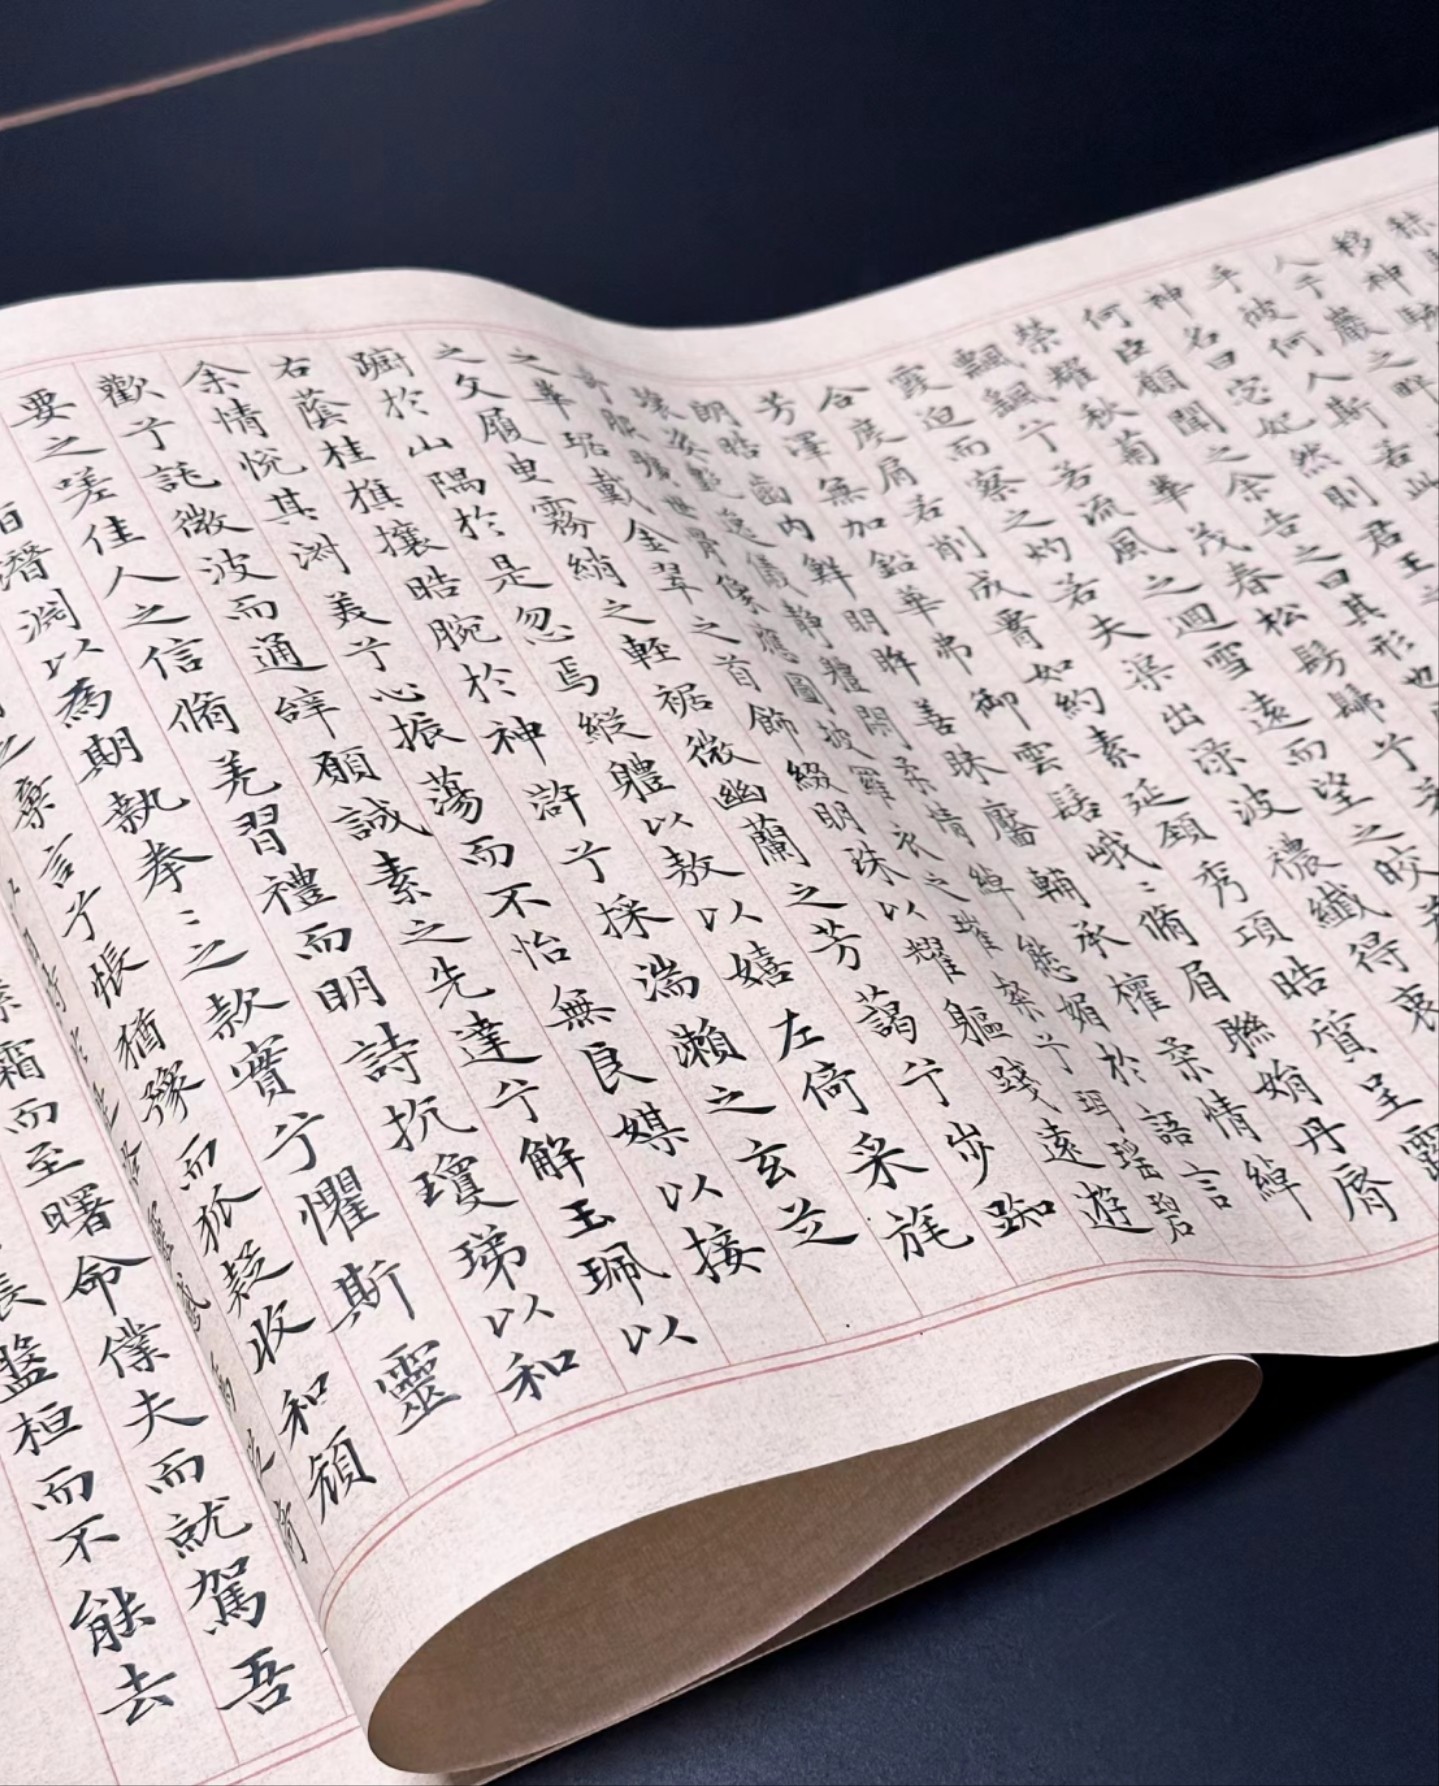 秣
移神駭
人于巖之畔
乎彼何人斯若此
神名曰宓妃然則君王之
何臣願聞之余告之曰其形也
榮耀秋菊華茂春松髣髴兮
飄颻兮若流風之迴雪遠而望之皎若
霞迫而察之灼若夫渠出渌波禯纖得衷
合度肩若削成腰如約素延頸秀項晧質呈露
芳澤無加鉛華弗御雲髻峨〻脩眉聯娟丹脣
朗晧齒內鮮明眸善睞靨輔承權
瓌姿艷逸儀靜體閑柔情綽態媚於語言
奇服曠世骨像應圖披羅衣之璀粲兮珥瑤碧
之華琚戴金翠之首飾綴明珠以耀軀踐遠遊
之文履曳霧綃之輕裾微幽蘭之芳藹兮步踟
躕於山隅於是忽焉縱體以敖以嬉左倚采旄
右蔭桂旗攘晧腕於神滸兮採湍瀨之玄芝
余情悅其淑美兮心振蕩而不怡無良媒以接
歡兮託微波而通辭願誠素之先達兮解玉珮以
要之嗟佳人之信脩羌習禮而明詩抗瓊珶以和
潛淵以為期執拳〻之款實兮懼斯靈
之棄言兮悵猶豫而狐疑收和顏
霜而至曙命僕夫而就駕吾
盤桓而不能去